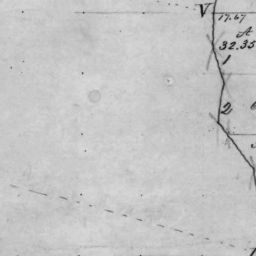 V
17.67
A
32.35
1
2